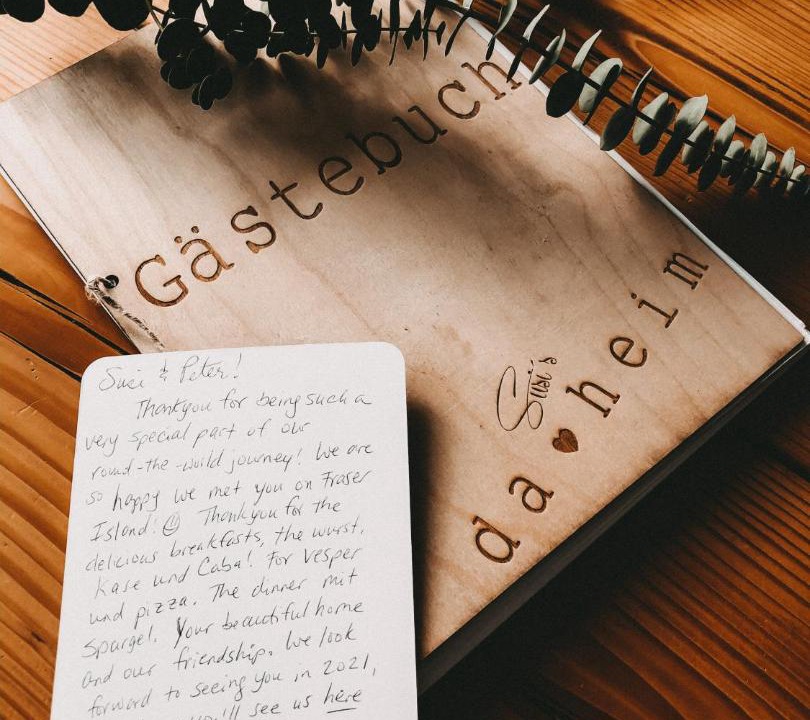 Gästebuch
Susi's
da heim
Susi & Peter!
Thankyou for being such a
very special part of our
round-the-world journey! We are
so happy we met you on Fraser
Island! Thankyou for the
delicious breakfasts, the wurst,
Kase und Caba! For Vesper
und pizza. The dinner mit
Spargel. Your beautiful home
and our friendship. We look
forward to seeing you in 2021,
you'll see us here